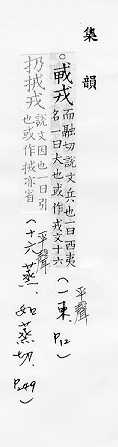 集韻
。戎 而融切說文兵也一曰西夷
名一曰大也或作戎文十六
平聲
(一東, P.12)
扔戎 說文因也一曰引
也或作亦省
平聲
(十六蒸, 如蒸切, P.249)